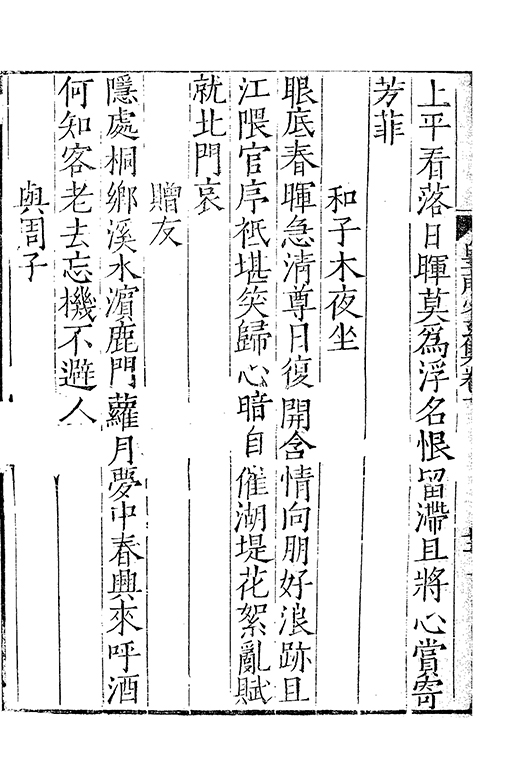 上平看落日暉莫爲浮名恨留滯且將心賞寄
芳菲
和子木夜坐
眼底春暉急清尊日復開含情向朋好浪跡且
江隈官序祗堪笑歸心暗自催湖堤花絮亂賦
就北門哀
贈友
隱處桐鄉溪水濵鹿門蘿月夢中春興來呼酒
何知客老去忘機不避人
與周子